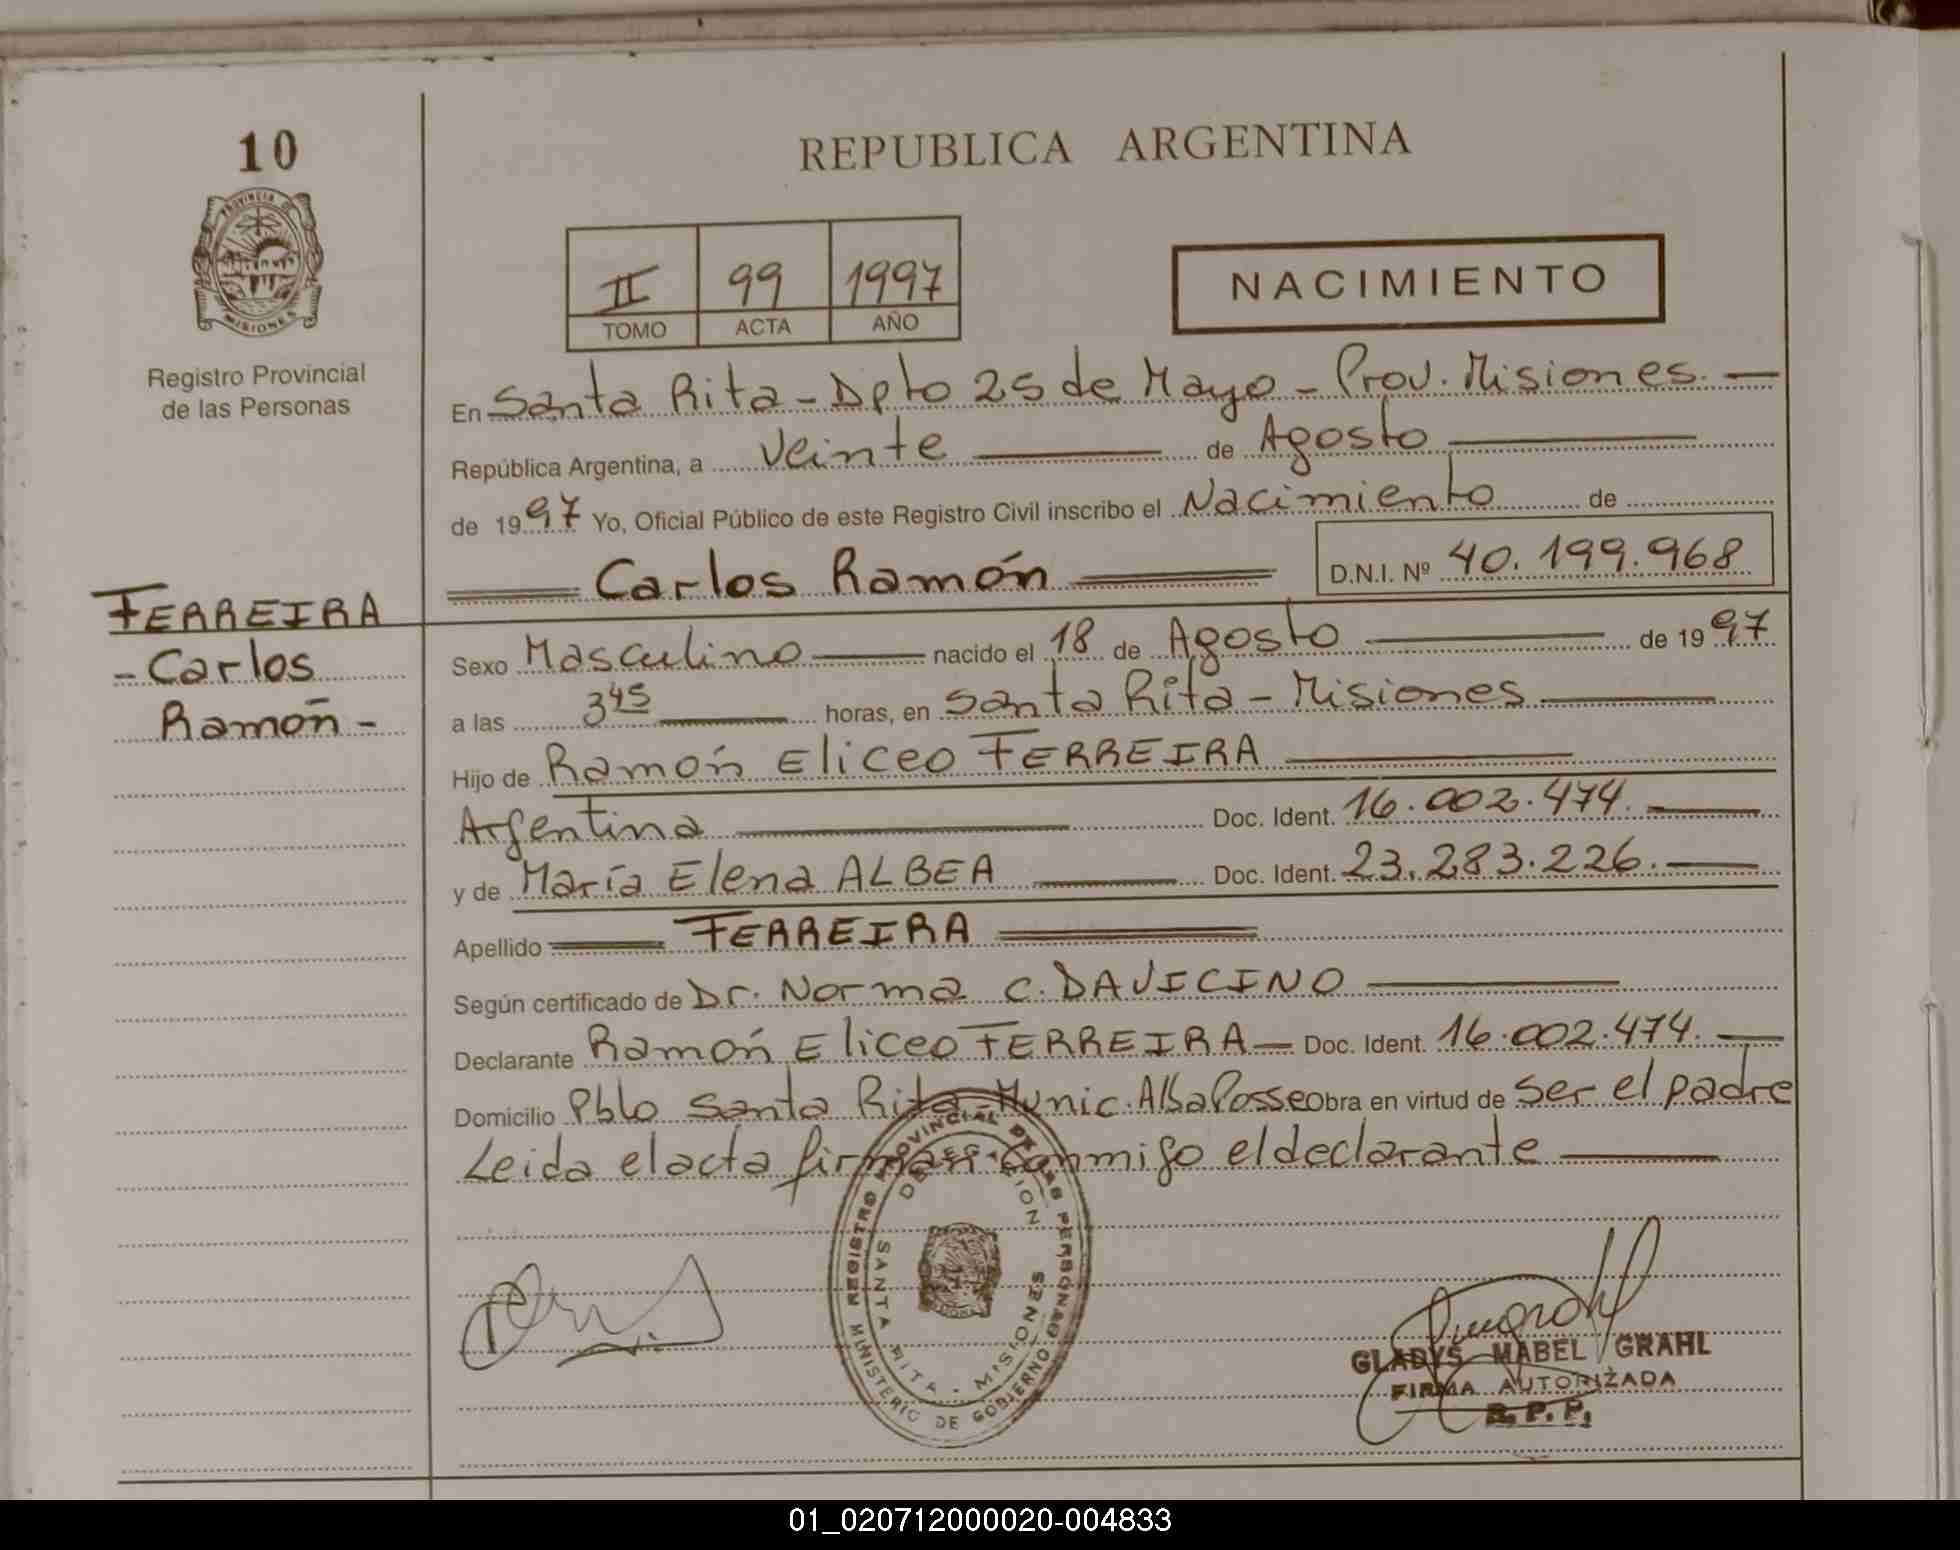 10
PROVINCIA DE
MISIONES
Registro Provincial
de las Personas
FERREIRA
- Carlos
Ramón -
REPUBLICA ARGENTINA
II 99 1997
TOMO ACTA AÑO
NACIMIENTO
En Santa Rita - Dpto 25 de Mayo - Prov. Misiones. —
República Argentina, a Veinte — de Agosto —
de 1997 Yo, Oficial Público de este Registro Civil inscribo el Nacimiento de
Carlos Ramón D.N.I. Nº 40.199.968
Sexo Masculino — nacido el 18 de Agosto — de 1997
a las 3 45 — horas, en Santa Rita - Misiones —
Hijo de Ramón Eliceo FERREIRA —
Argentina — Doc. Ident. 16.002.474. —
y de María Elena ALBEA — Doc. Ident. 23.283.226. —
Apellido FERREIRA
Según certificado de Dr. Norma C. DAVICINO —
Declarante Ramón Eliceo FERREIRA — Doc. Ident. 16.002.474. —
Domicilio Pblo Santa Rita - Munic. Alba Posse obra en virtud de Ser el padre
Leida el acta firman conmigo el declarante —
REGISTRO PROVINCIAL DE LAS PERSONAS
DELEGACION
SANTA RITA - MISIONES
MINISTERIO DE GOBIERNO
GLADYS MABEL GRAHL
FIRMA AUTORIZADA
R. P. P.
01_020712000020-004833